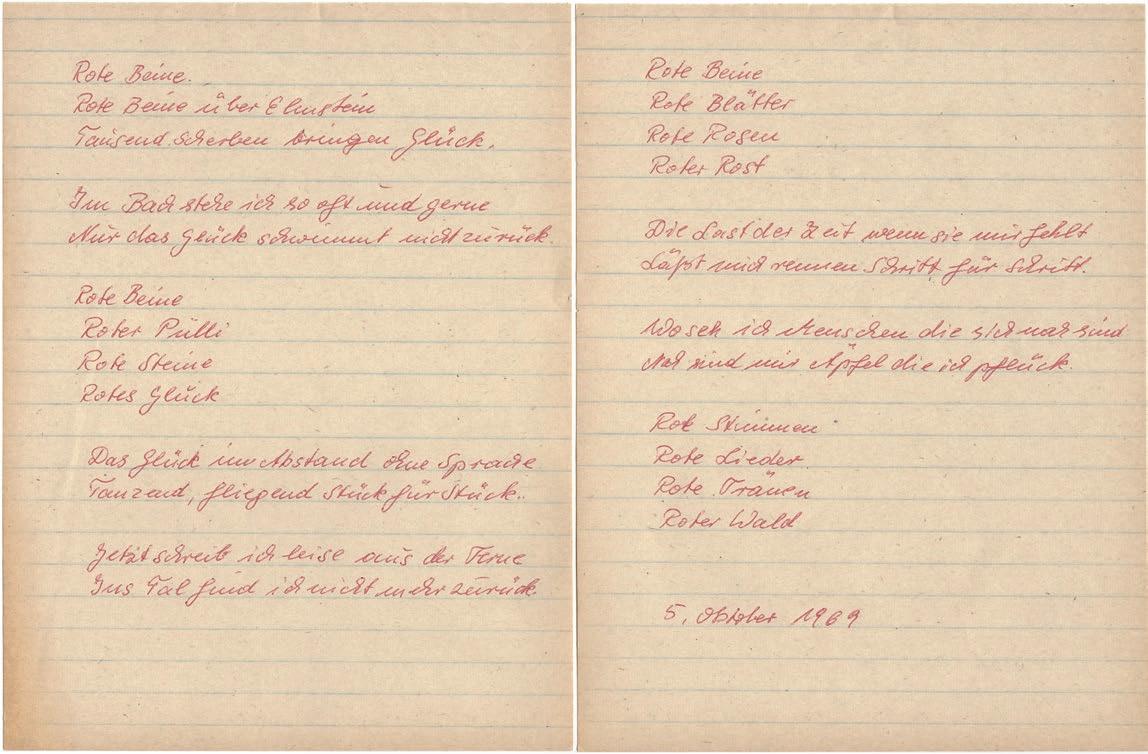 Rote Beine.
Rote Beine über Elmstein
Tausend Scherben bringen Glück.
Im Bach stehe ich so oft und gerne
Nur das Glück schwimmt nicht zurück.
Rote Beine
Roter Pulli
Rote Steine
Rotes Glück
Das Glück im Abstand ohne Sprache
Tanzend, fliegend Stück für Stück..
Jetzt schreib ich leise aus der Ferne
Ins Tal find ich nicht mehr zurück.
Rote Beine
Rote Blätter
Rote Rosen
Roter Rost
Die Last der Zeit wenn sie mir fehlt
Läßt mich rennen Schritt für Schritt.
Wo seh ich Menschen die sich nah sind
Nah sind mir Äpfel die ich pflück.
Rote Stimmen
Rote Lieder
Rote Tränen
Roter Wald
5. Oktober 1969